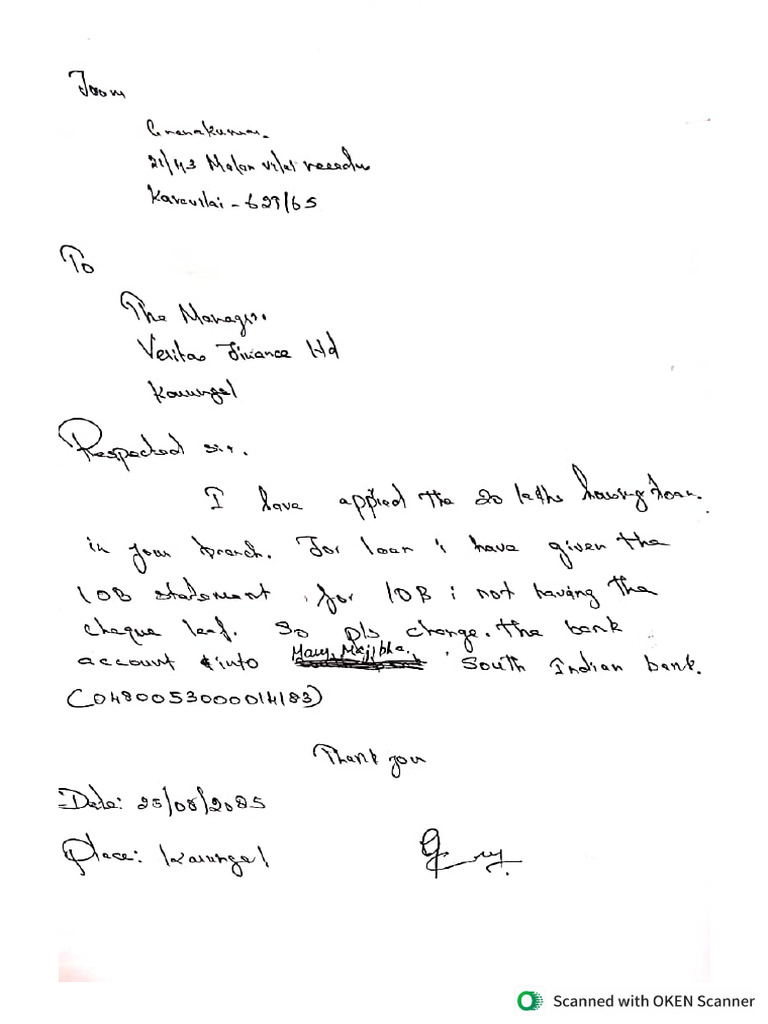 From
Gnanakumar.
21/43 Melan vilai veeedu
Karavilai - 629165
To
The Manager.
Veritas Finance ltd
Karungal
Respected sir.
I have applied the 20 lakhs housing loan.
in your branch. For loan i have given the
IOB statement, for IOB i not having the
cheque leaf. So pls change. the bank
account into Mary Majibha. South Indian bank.
(0480053000014183)
Thank you
Date: 25/08/2025
Place: Karungal
Scanned with OKEN Scanner